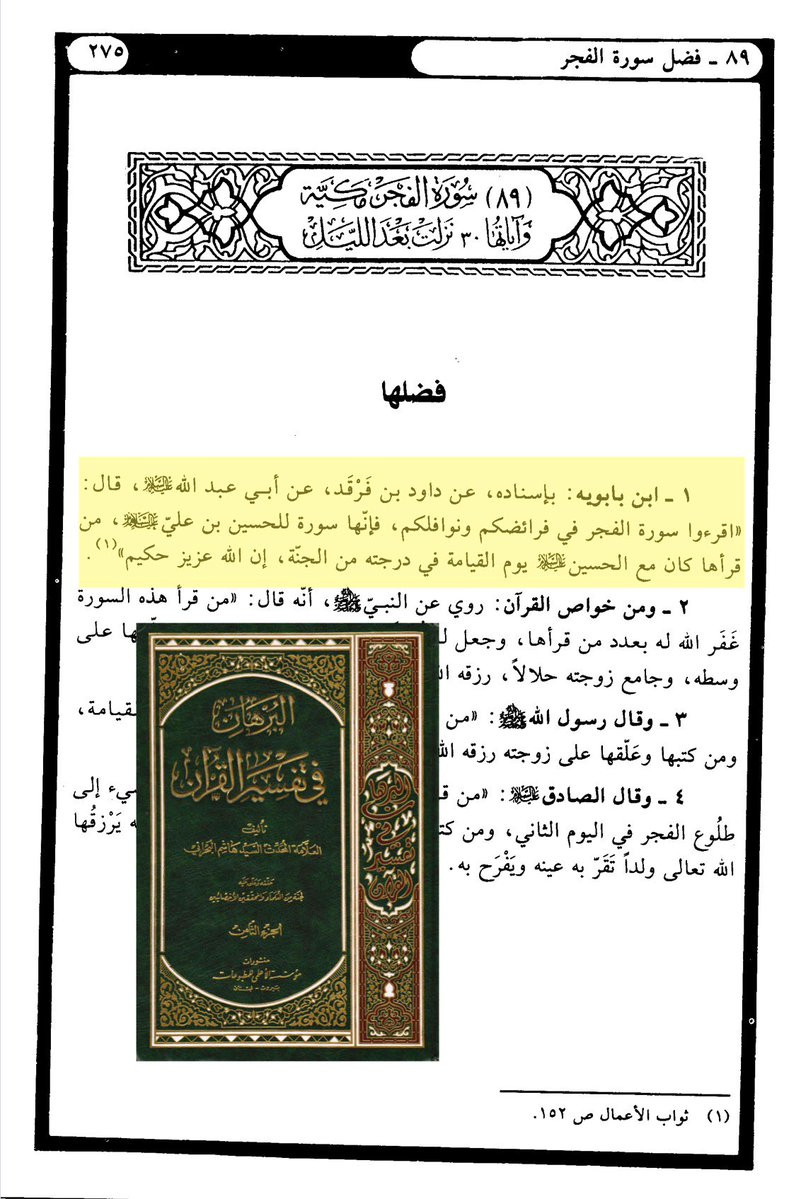 ٨٩ ـ فضل سورة الفجر
٢٧٥
(٨٩) سُورَة الفَجرِ مَكيَّة
وَآياتهَا ٣٠ نَزلَت بَعْدَ الليَل
فضلها
١ ـ ابن بابويه: بإسناده، عن داود بن فَرْقَد، عن أبي عبد الله عليه السلام، قال:
«اقرءوا سورة الفجر في فرائضكم ونوافلكم، فإنّها سورة للحسين بن عليّ عليه السلام، من
قرأها كان مع الحسين عليه السلام يوم القيامة في درجته من الجنّة، إن الله عزيز حكيم»(١).
٢ ـ ومن خواص القرآن: روي عن النبيّ ﷺ، أنّه قال: «من قرأ هذه السورة
غَفَر الله له بعدد من قرأها، وجعل على
وسطه، وجامع زوجته حلالاً، رزقه
٣ ـ وقال رسول الله ﷺ: «من القيامة،
ومن كتبها وعَلّقها على زوجته رزقه
٤ ـ وقال الصادق عليه السلام: «من إلى
طلُوع الفجر في اليوم الثاني، ومن يَرْزقُها
الله تعالى ولداً تَقَرّ به عينه ويَفْرَح به.
البُرهَان
في تفسير القرآن
تأليف
العلامة المحدث السيد هاشم البحراني
الجزء الثامن
منشورات
مؤسسة الأعلمي للمطبوعات
بيروت - لبنان
البرهان
في
تفسير
القرآن
(١) ثواب الأعمال ص ١٥٢.